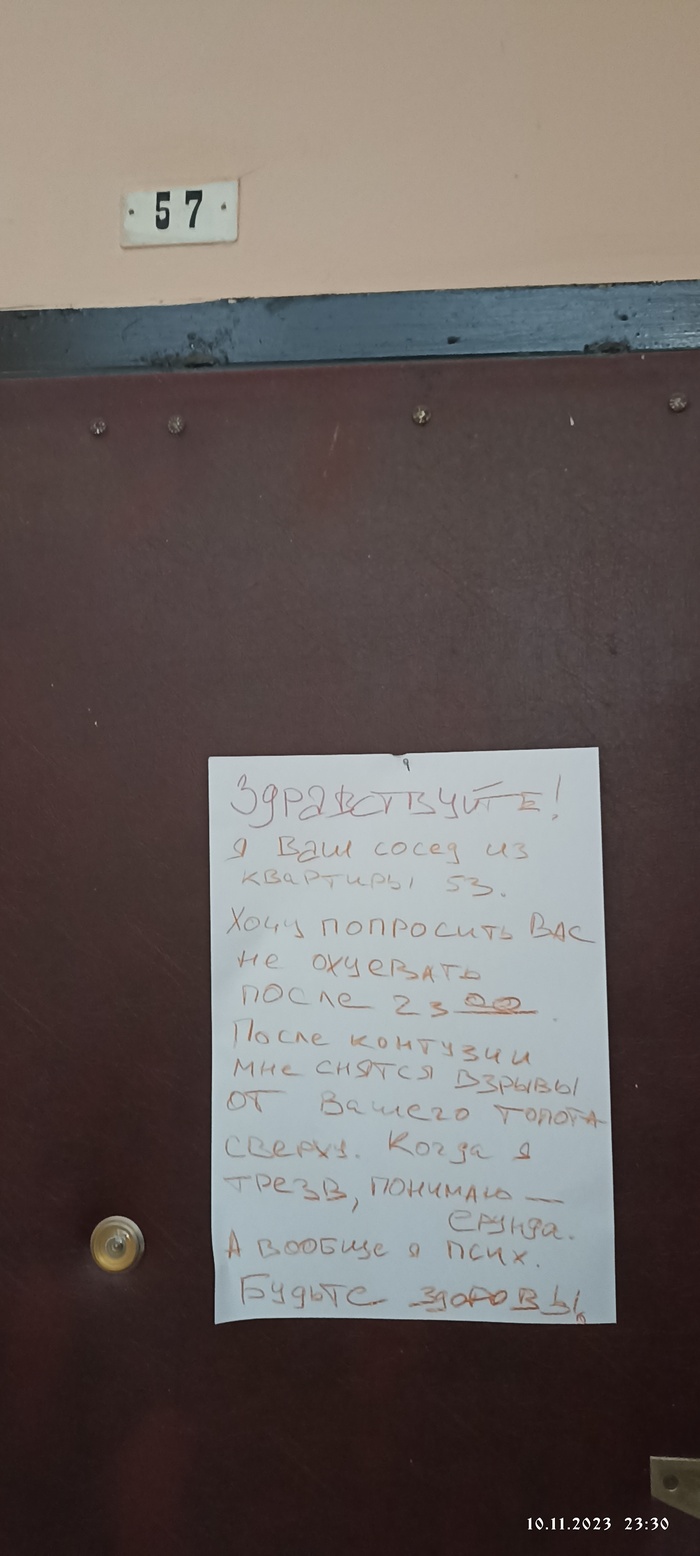 57
Здравствуйте!
Я Ваш сосед из
квартиры 53.
Хочу попросить Вас
не охуевать
после 23 00.
После контузии
мне снятся взрывы
от Вашего топота
сверху. Когда я
трезв, понимаю —
ерунда.
А вообще я псих.
Будьте здоровы.
10.11.2023 23:30